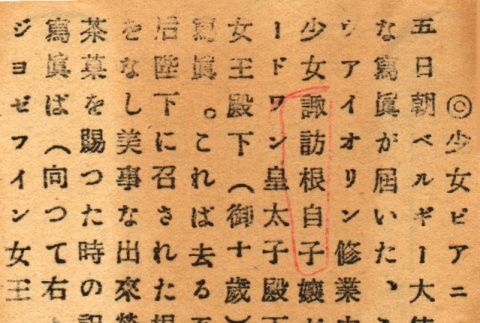 ◎少女ピアニ
五日朝ベルギー大使
な寫眞が屆いた、
ヴアイオリン修業中
少女諏訪根自子孃が
ードワン皇太子殿下
女王殿下（御十歲）
寫眞。これは去る五
后陛下に召された
をなし美事な出來榮
茶菓を賜つた時の記
寫眞は（向つて右よ
ジヨゼフイン女王